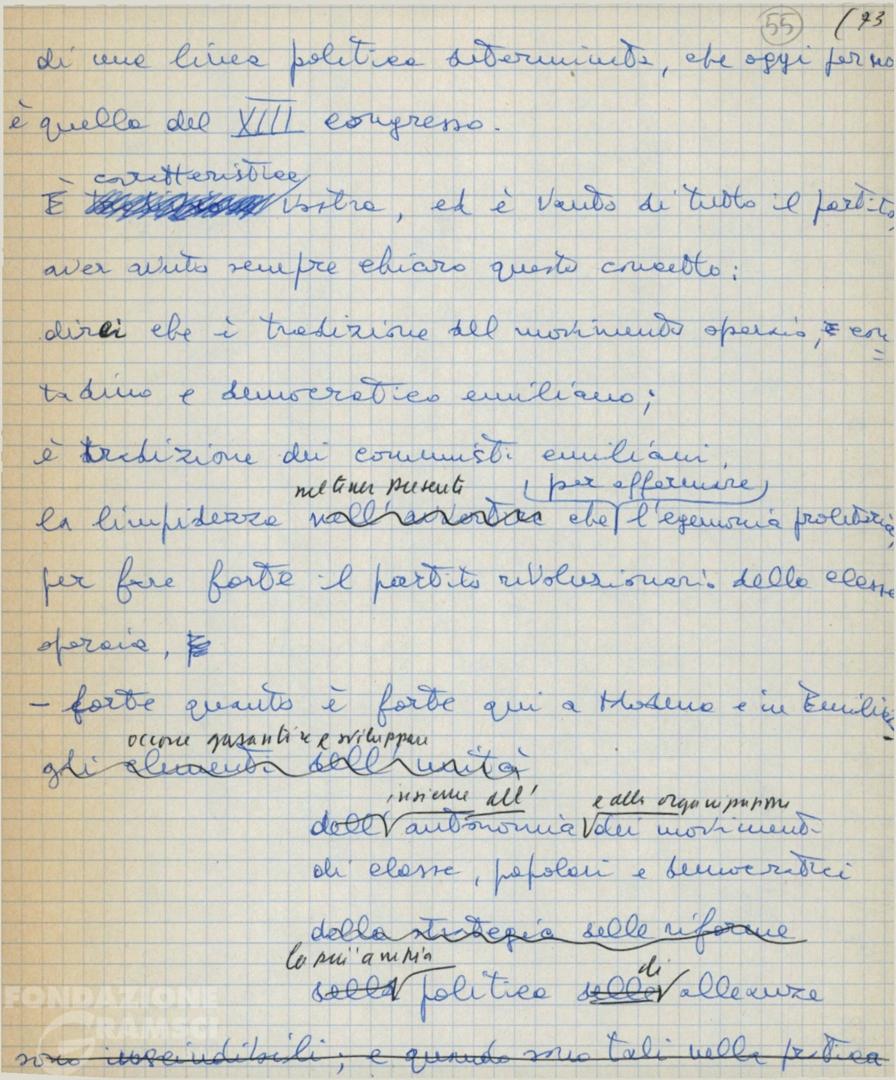 55 (73
di una linea politica determinata, che oggi per noi
è quella del XIII congresso.
caratteristica
È vostra, ed è vanto di tutto il partito,
aver avuto sempre chiaro questo concetto:
direi che è tradizione del movimento operaio, con
tadino e democratico emiliano;
è tradizione dei comunisti emiliani,
nel tener presente per affermare
la limpidezza nell'avvertire che l'egemonia proletaria,
per fare forte il partito rivoluzionario della classe
operaia,
- forte quanto è forte qui a Modena e in Emilia -
occorre garantire e sviluppare
gli elementi dell'unità
insieme all' e alla organizzazione
dell' autonomia dei movimenti
di classe, popolari e democratici
della strategia delle riforme
la più ampia di
della politica delle alleanze
FONDAZIONE
GRAMSCI
sono inscindibili; e quando sono tali nella pratica